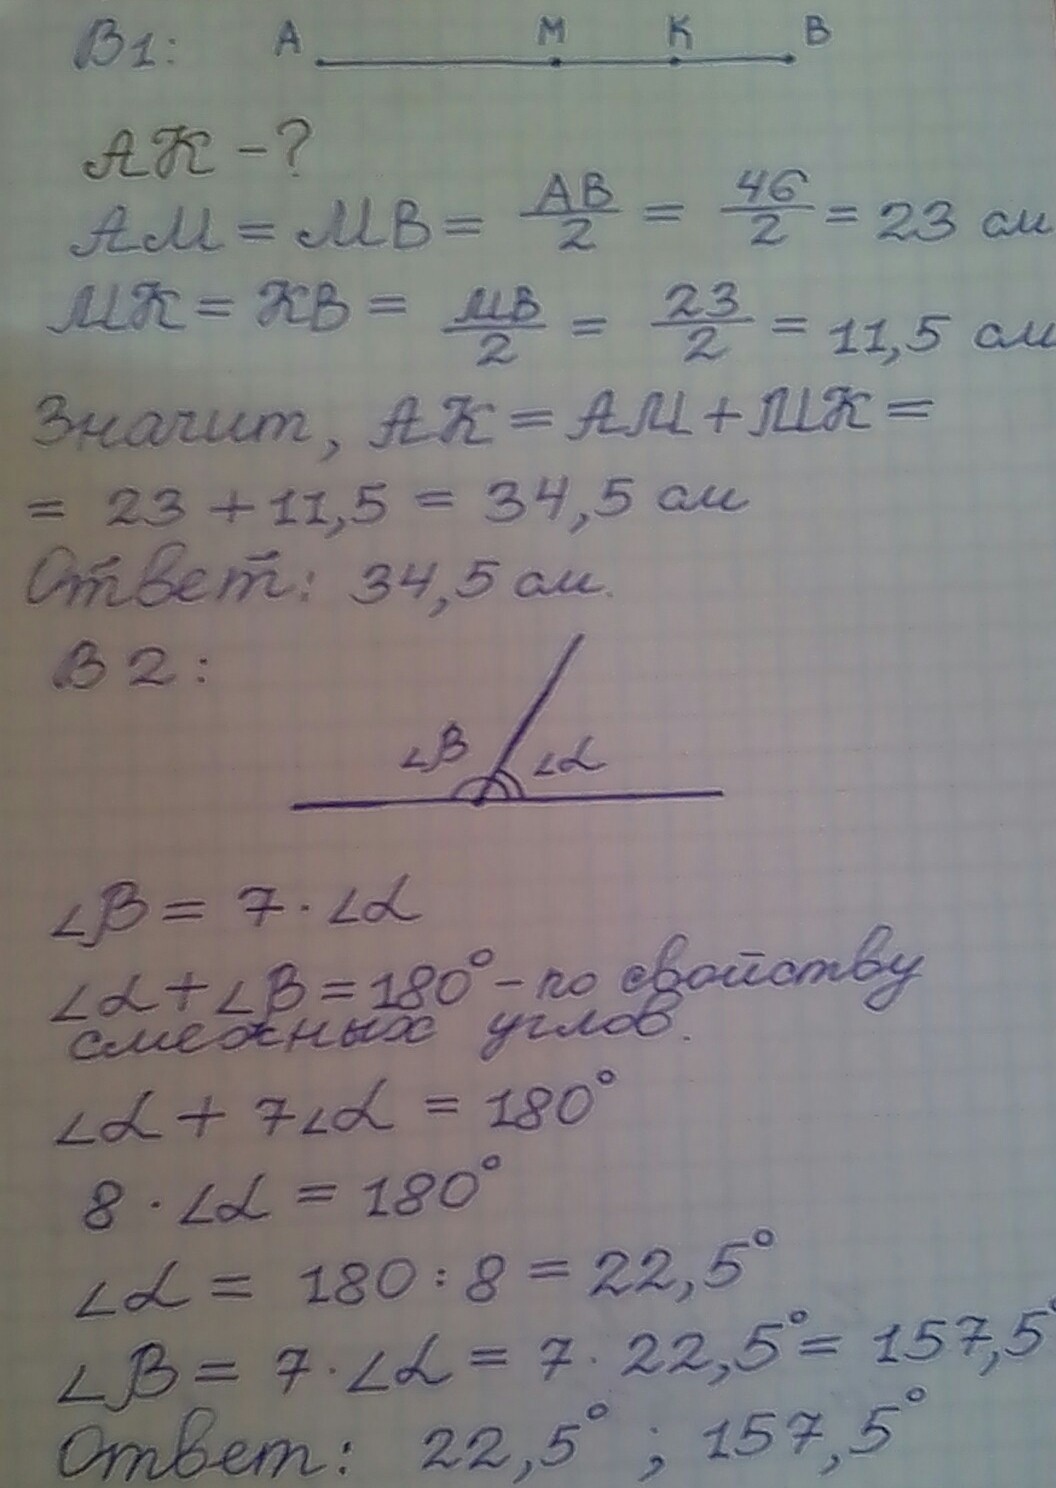 В1: А М К В
АК - ?
АМ = МВ = АВ/2 = 46/2 = 23 см
МК = КВ = МВ/2 = 23/2 = 11,5 см
Значит, АК = АМ + МК =
= 23 + 11,5 = 34,5 см
Ответ: 34,5 см.
В 2:
∠β ∠α
∠β = 7 · ∠α
∠α + ∠β = 180° - по свойству
смежных углов.
∠α + 7∠α = 180°
8 · ∠α = 180°
∠α = 180 : 8 = 22,5°
∠β = 7 · ∠α = 7 · 22,5° = 157,5°
Ответ: 22,5° ; 157,5°